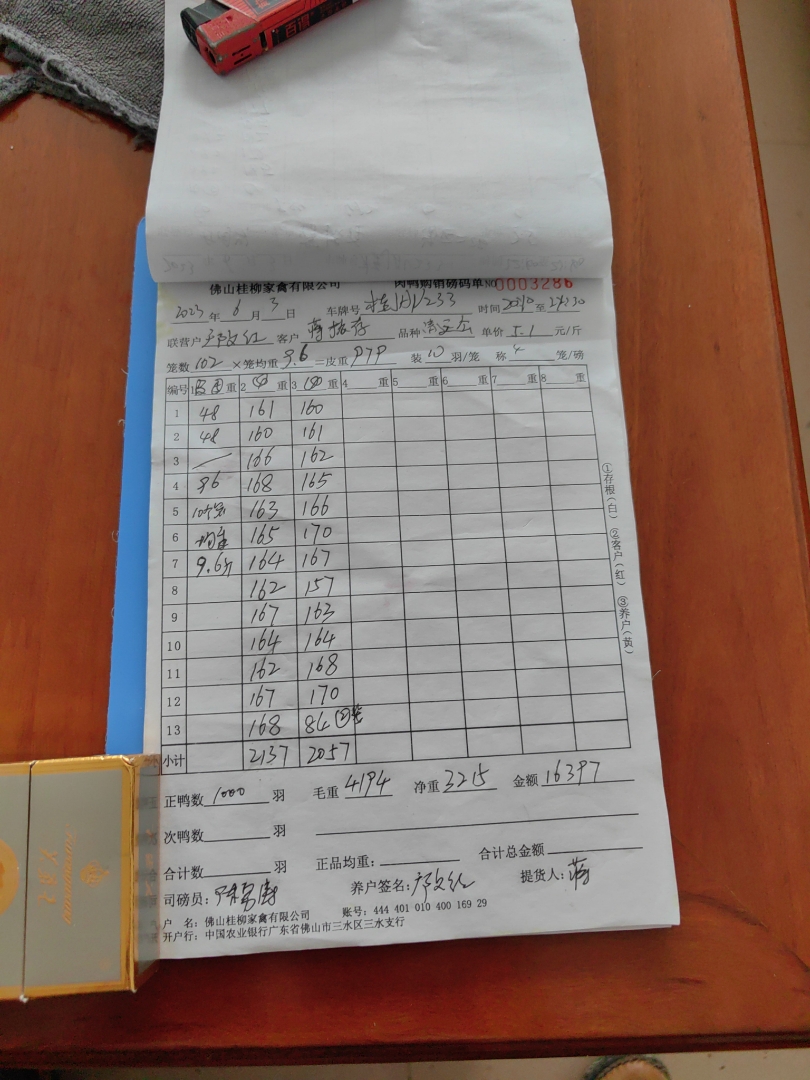 佛山桂柳家禽有限公司 肉鸭购销磅码单 NO 0003286
2023 年 6 月 3 日 车牌号 时间 至
联营户 客户 品种 单价 5.1 元/斤
笼数 102 ×笼均重 9.6 =皮重 979 装 10 羽/笼 称 4 笼/磅
编号 1 重 2 重 3 重 4 重 5 重 6 重 7 重 8 重
1 48 161 160
2 48 160 161
3 166 162
4 96 168 165
5 10个笼 163 166
6 均重 165 170
7 9.6斤 164 167
8 162 157
9 167 163
10 164 164
11 162 168
12 167 170
13 168 84 ②笼
小计 2137 2057
①存根(白) ②客户(红) ③养户(黄)
正鸭数 1000 羽 毛重 4194 净重 3215 金额 16397
次鸭数 羽
合计数 羽 正品均重: 合计总金额
司磅员: 养户签名: 提货人:
户 名: 佛山桂柳家禽有限公司 账号: 444 401 010 400 169 29
开户行: 中国农业银行广东省佛山市三水区三水支行